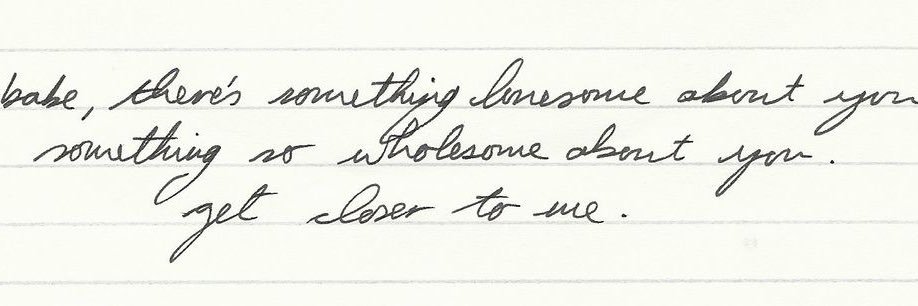 babe, there's something lonesome about you
something so wholesome about you.
get closer to me.